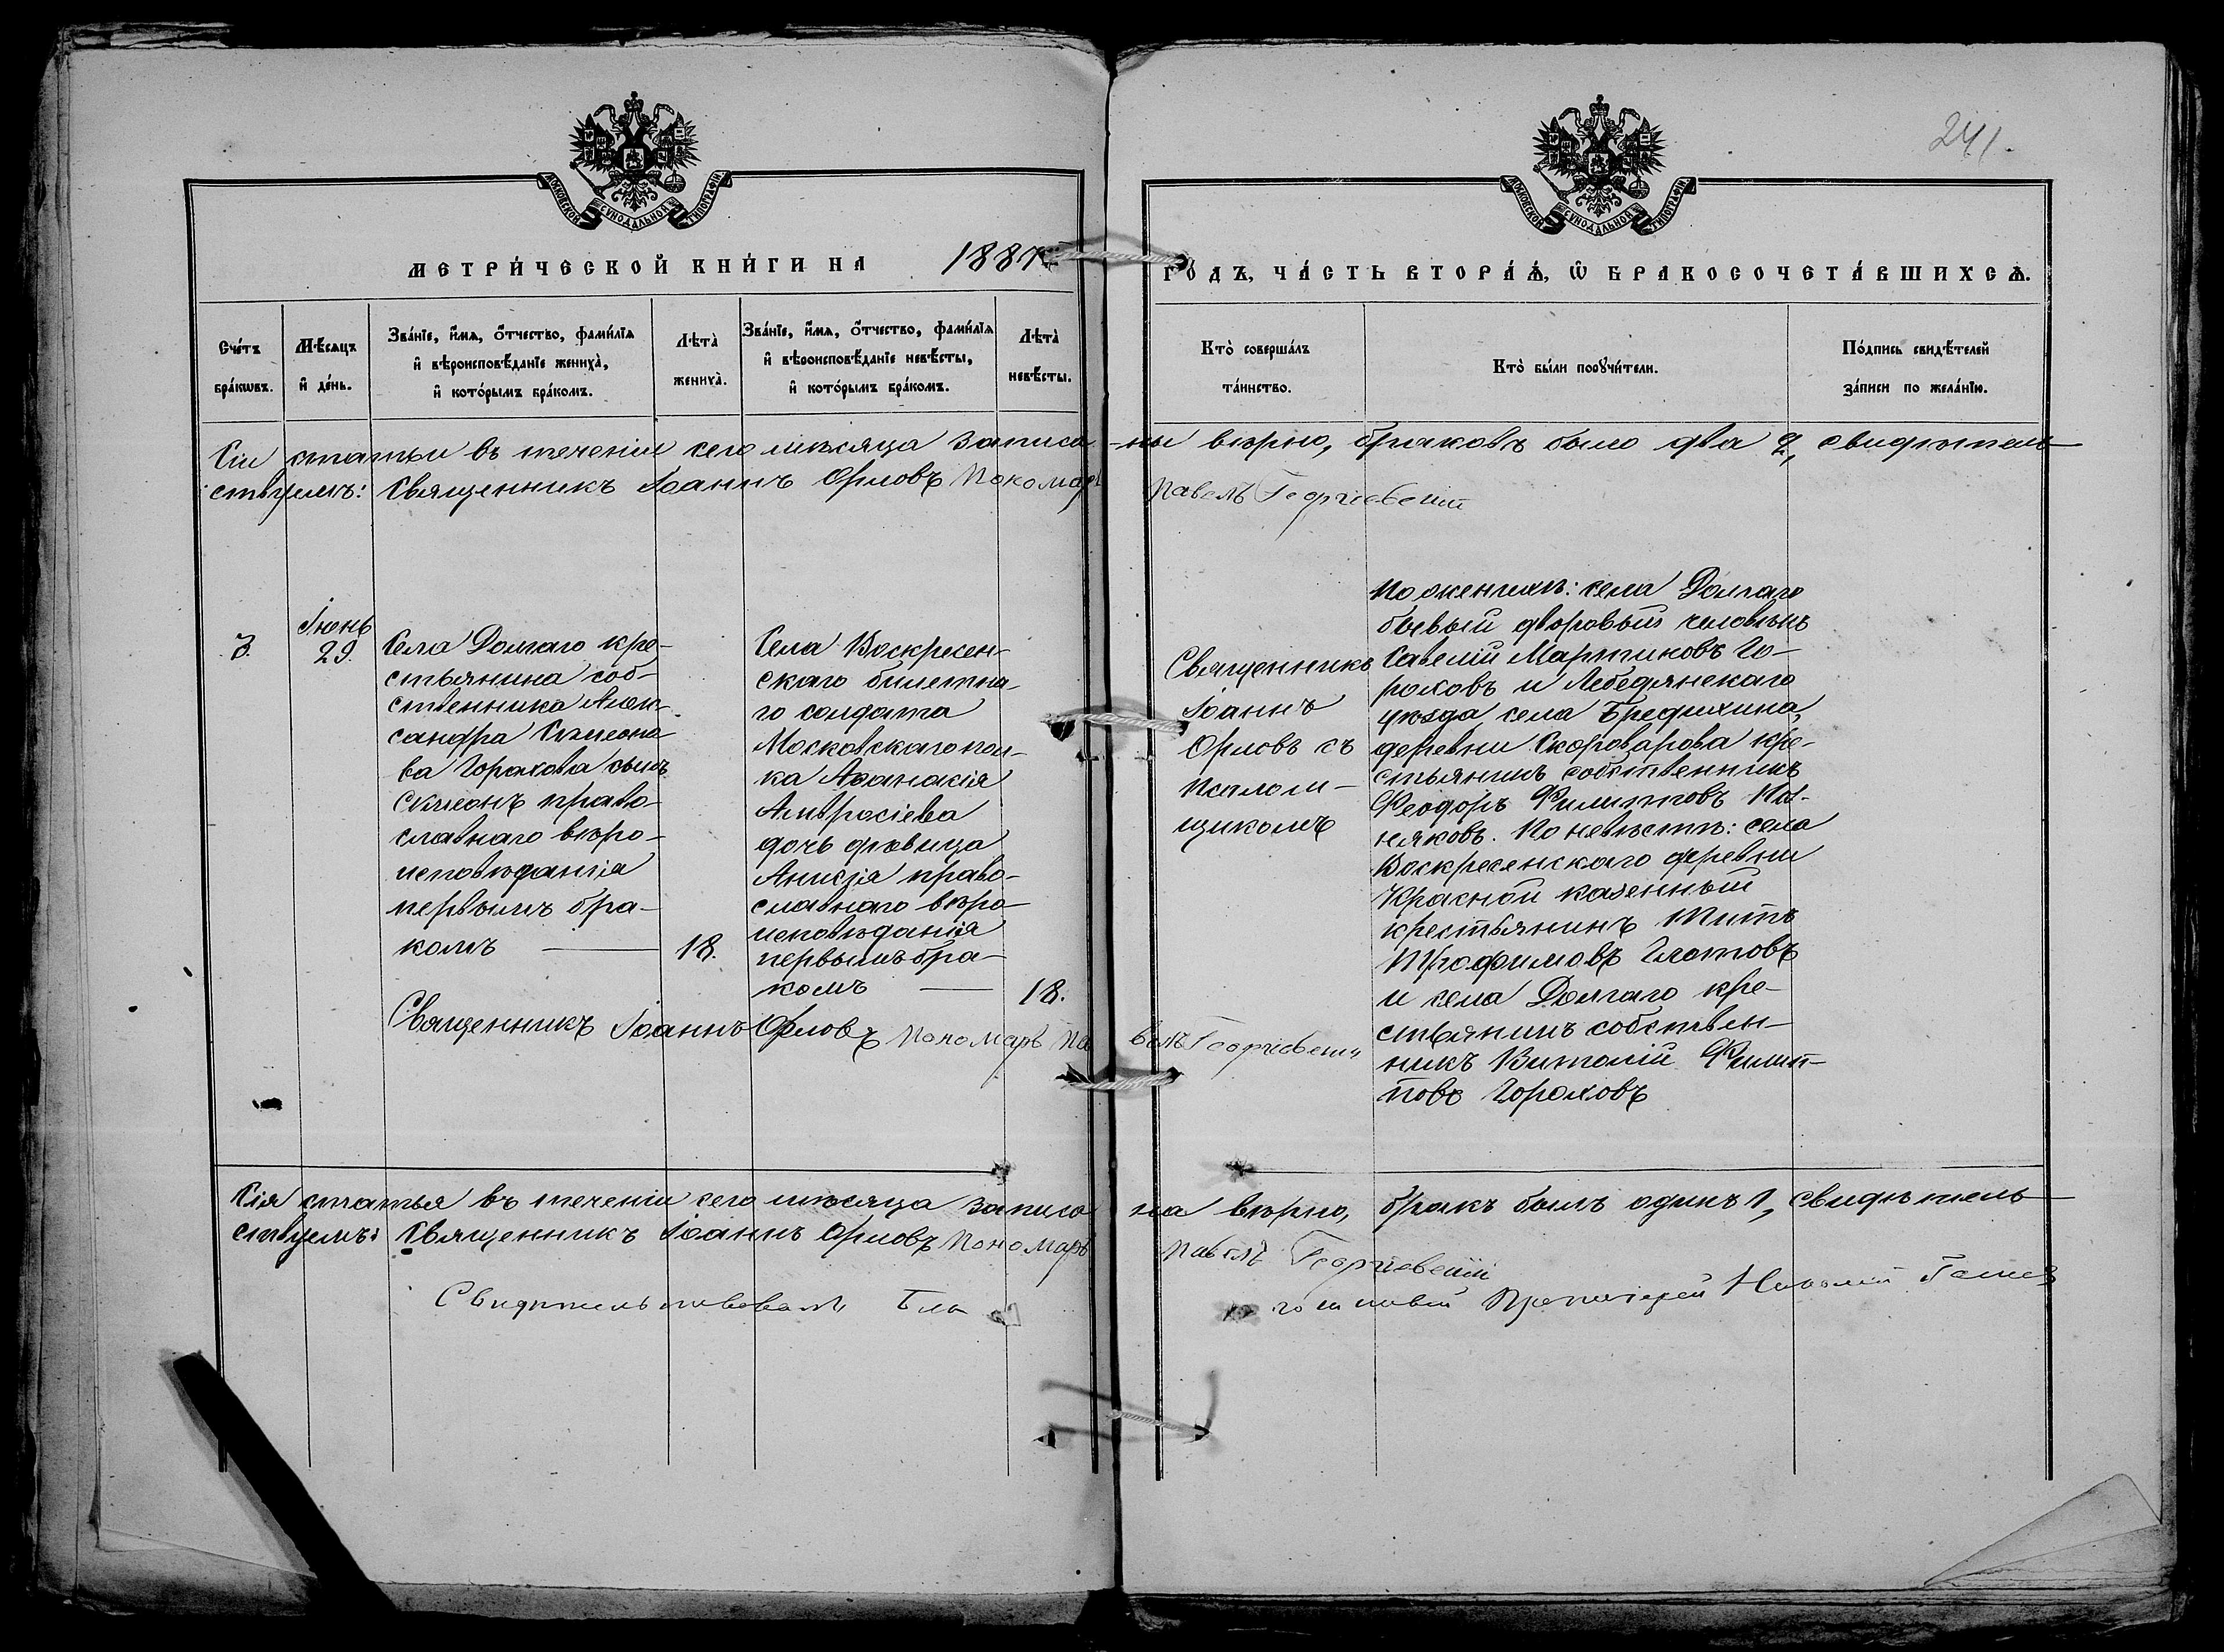 241.
МОСКОВСКОЙ СУНОДАЛЬНОЙ ТИПОГРАФІИ
МОСКОВСКОЙ СУНОДАЛЬНОЙ ТИПОГРАФІИ
МЕТРИ́ЧЕСКОЙ КНИ́ГИ НА 1887
ГО́ДЪ, ЧА́СТЬ ВТОРА́Ѧ, Ѡ҆ БРАКОСОЧЕТА́ВШИХСѦ.
Сче́тъ
бра́кѡвъ.
Мѣ́сѧцъ
и҆ де́нь.
Зва́нїе, и҆́мѧ, ѻ҆́тчество, фами́лїѧ
и҆ вѣроисповѣ́данїе жениха̀,
и҆ кото́рымъ бра́комъ.
Лѣта̀
жениха̀.
Зва́нїе, и҆́мѧ, ѻ҆́тчество, фами́лїѧ
и҆ вѣроисповѣ́данїе невѣ́сты,
и҆ кото́рымъ бра́комъ.
Лѣта̀
невѣ́сты.
Кто̀ соверша́лъ
та́инство.
Кто̀ бы́ли порꙋчи́тели.
По́дпись свидѣ́телей
за́писи по жела́нїю.
Сіи статьи въ теченіи сего мѣсяца записа-ны вѣрно, браковъ было два 2, свидѣтель
ствуемъ: Священникъ Іоаннъ Орловъ Пономарь Павелъ Георгіевскій
3.
Іюнь
29.
Села Долгаго кре-
стьянина соб-
ственника Алек-
сандра Симеоно
ва Горохова сынъ
Симеонъ право-
славнаго вѣро-
исповѣданія
первымъ бра-
комъ
18.
Села Воскресен-
скаго билетна-
го солдата
Московскаго пол-
ка Аѳанасія
Амвросіева
дочь дѣвица
Анисія право-
славнаго вѣро
исповѣданія
первымъ бра-
комъ
18.
Священникъ
Іоаннъ
Орловъ съ
псаломщ-
щикомъ
По женихѣ: села Долгаго
бывый дворовый человѣкъ
Савелій Мартиновъ Го-
роховъ и Лебедянскаго
уѣзда села Бредихина,
деревни Скороварова кре-
стьянинъ собственникъ
Феодоръ Филипповъ
няковъ. По невѣстѣ: села
Воскресенскаго деревни
Красной казенный
крестьянинъ Титъ
Трофимовъ Глотовъ
и села Долгаго кре-
стьянинъ собствен-
никъ Виталій Филип-
повъ Гороховъ
Священникъ Іоаннъ Орловъ Пономарь Павелъ Георгіевскій
Сія статья въ теченіи сего мѣсяца записана вѣрно, бракъ былъ одинъ 1, свидѣтель
ствуемъ: Священникъ Іоаннъ Орловъ Пономарь Павелъ Георгіевскій
Свидѣтельствовалъ Бла гочинный Протоіерей Николай